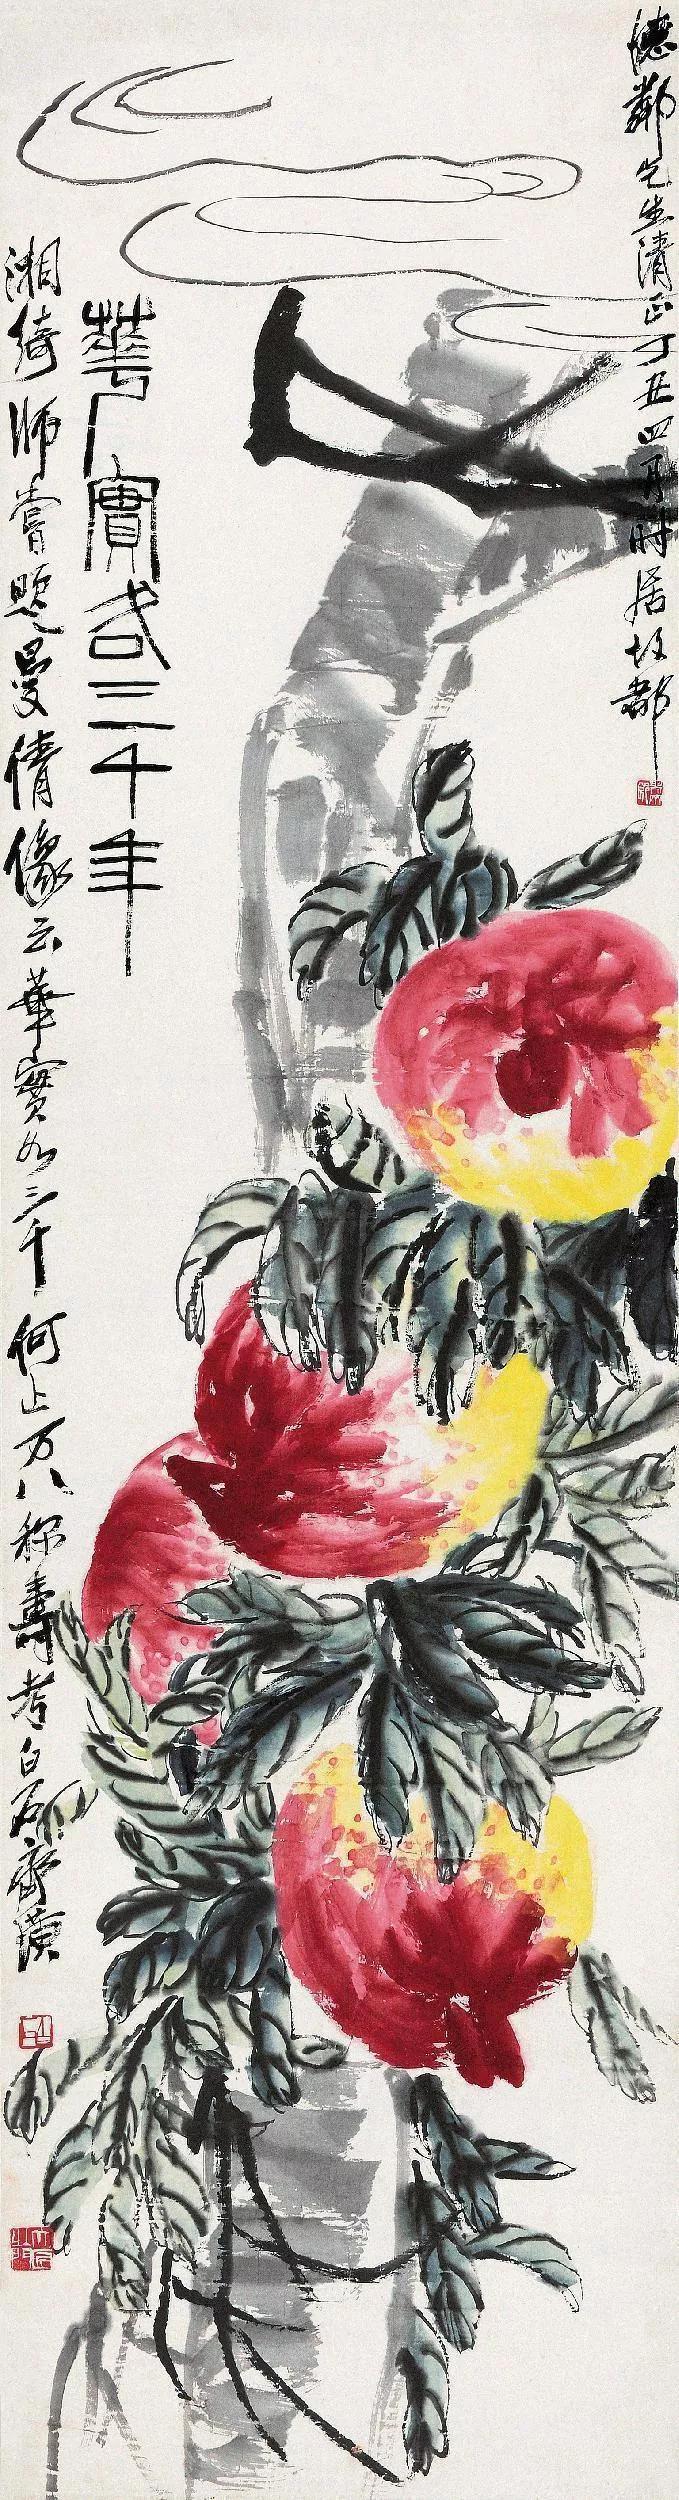 德鄰先生清正丁丑四月時居故都
華實成三千年
湘綺師嘗題曼倩像云華實如三千何止万八称壽考白石齊璜